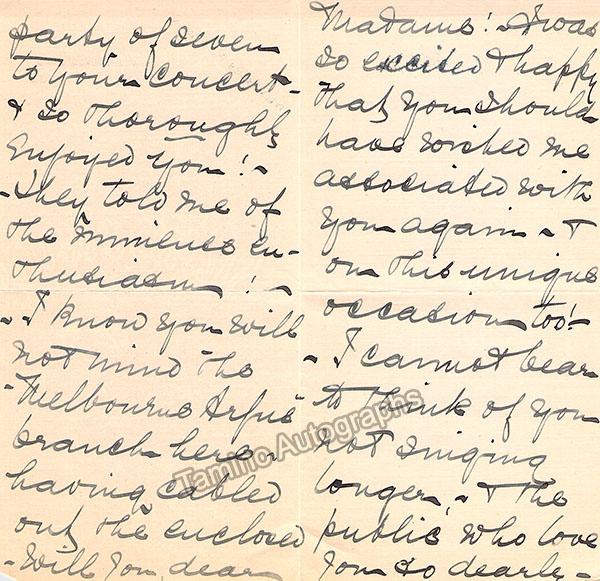 party of seven
to your concert -
& so thoroughly
enjoyed you! -
- They told me of
the immense en-
thusiasm! -
- I know you will
not mind the
"Melbourne Argus"
branch here -
having cabled
out the enclosed
- Will you, dear
Madame! - I was
so excited & happy
that you should
have wished me
associated with
you again - &
on this unique
occasion too! -
- I cannot bear
to think of you
not singing
longer, - & the
public who love
you so dearly -
Tamino Autographs